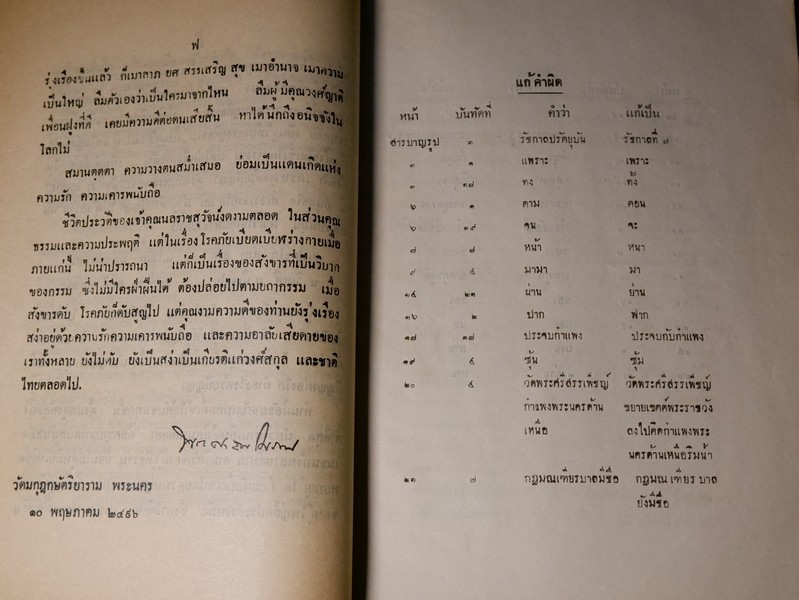 ฬ
รุ่งเรืองขึ้นแล้ว ก็เมาลาภ ยศ สรรเสริญ สุข เมาอำนาจ เมาความ
เป็นใหญ่ ลืมตัวเองว่าเป็นใครมาจากไหน ลืมผู้มีคุณวงศ์ญาติ
เพื่อนฝูงที่ดี เคยมีความดีต่อตนเสียสิ้น หาได้นึกถึงอนิจจังใน
โลกไม่
สมานตฺตตา ความวางตนสม่ำเสมอ ย่อมเป็นแดนเกิดแห่ง
ความรัก ความเคารพนับถือ
ชีวิตประวัติของเจ้าคุณนลราชสุวัจน์งดงามตลอด ในส่วนคุณ
ธรรมและความประพฤติ แต่ในเรื่องโรคภัยเบียดเบียฬร่างกายเมื่อ
ภายแก่นี้ ไม่น่าปรารถนา แต่ก็เป็นเรื่องของสังขารที่เป็นวิบาก
ของกรรม ซึ่งไม่มีใครฝ่าฝืนได้ ต้องปล่อยไปตามยถากรรม เมื่อ
สังขารดับ โรคภัยก็ดับสูญไป แต่คุณงามความดีของท่านยังรุ่งเรือง
สง่าอยู่ด้วยความรักความเคารพนับถือ และความอาลัยเสียดายของ
เราทั้งหลาย ยังไม่ดับ ยังเป็นสง่าเป็นเกียรติแก่วงศ์สกุล และชาติ
ไทยตลอดไป.
วัดมกุฎกษัตริยาราม พระนคร
๑๐ พฤษภาคม ๒๔๙๖
แก้คำผิด
หน้า บันทัดที่ คำว่า แก้เป็น
สารบาญรูป ๓ รัชกาลปรัตยุบัน รัชกาลที่ ๗
๓ ๑ แพราะ เพราะ
๓ ๑๗ ทง ทั้ง
๖ ๑ ตาม ตอน
๖ ๑๙ จน จะ
๗ ๗ หน้า หนา
๙ ๕ มามา มา
๑๕ ๒๑ ผ่าน ย่าน
๑๖ ๒ ปาก ฟาก
๑๗ ๑๗ ประจบกำแพง ประจบกับกำแพง
๑๙ ๕ ซุ้น ซุ้ม
๒๐ ๕ วัดพระศรีสรรเพ็ชญ์ วัดพระศรีสรรเพ็ชญ์
กำแพงพระนครด้าน ขยายเขตต์พระราชวัง
เหนือ ลงไปติดกำแพงพระ
นครด้านเหนือริมน้ำ
๒๑ ๗ กฎมณเฑียรบาลมีชื่อ กฎมณเฑียรบาล
ยังมีชื่อ